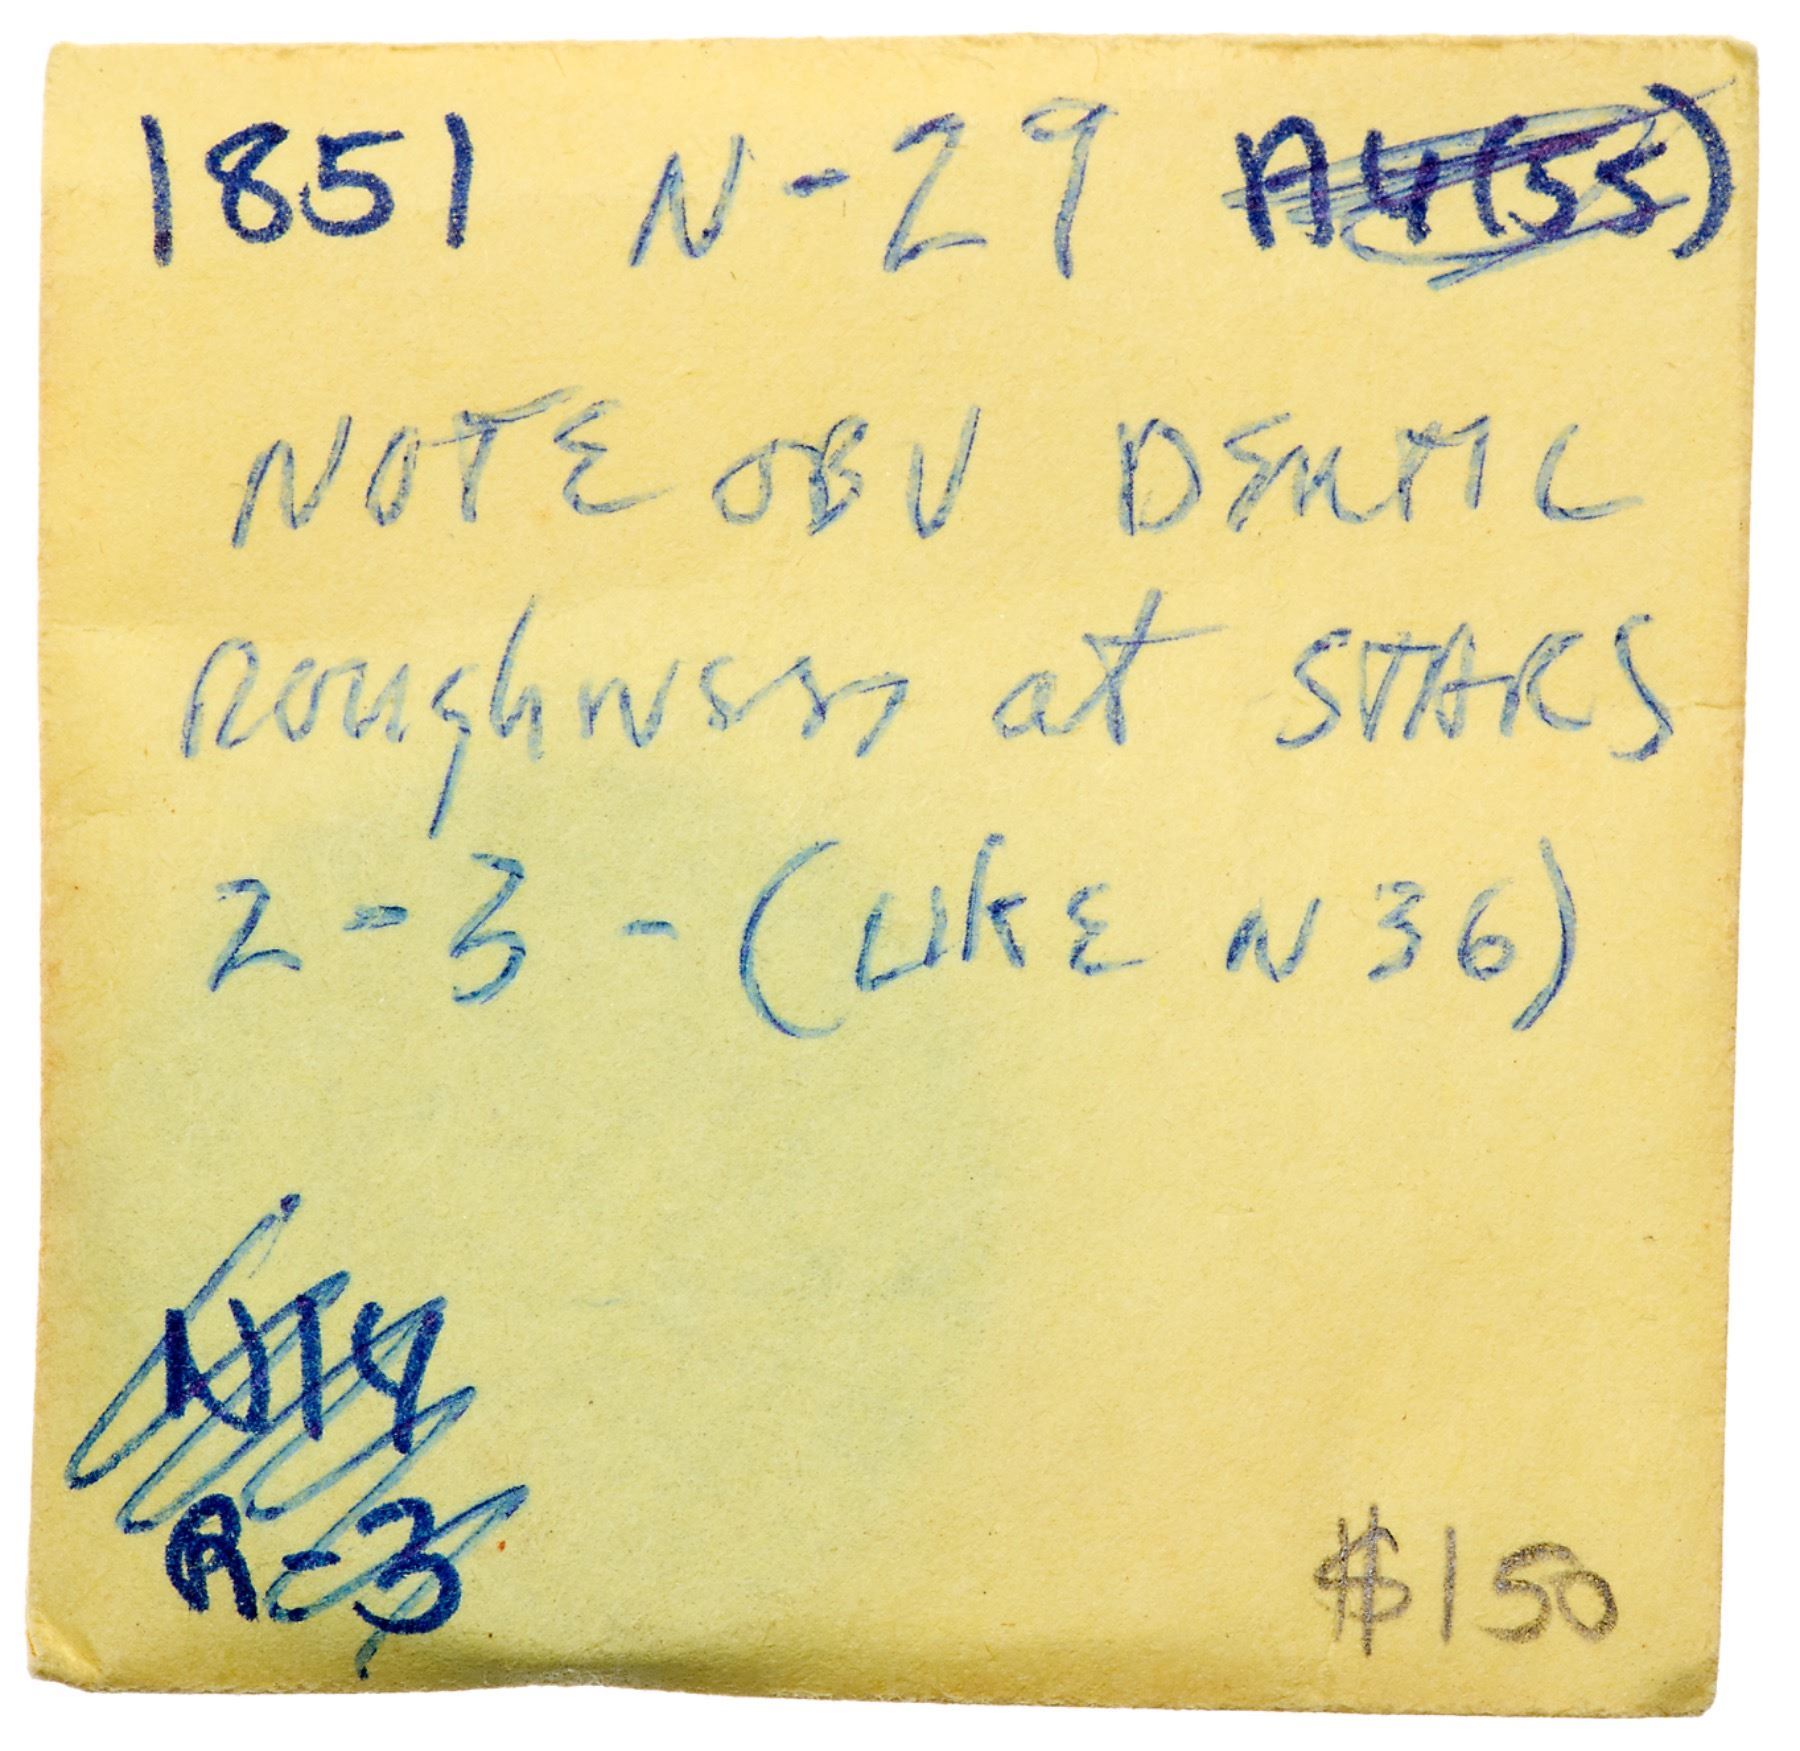 1851 N-29 AU(55)
NOTE OBV DENTIL
Roughness at STARS
2-3-(LIKE N36)
N14
R-3
$150